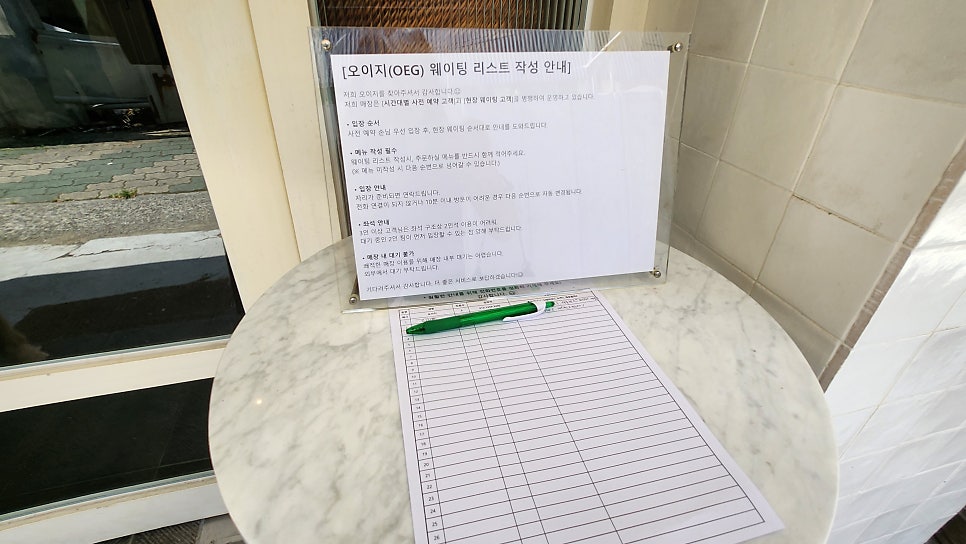 [오이지(OEG) 웨이팅 리스트 작성 안내]
저희 오이지를 찾아주셔서 감사합니다☺
저희 매장은 [시간대별 사전 예약 고객]과 [현장 웨이팅 고객]을 병행하여 운영하고 있습니다.
• 입장 순서
사전 예약 손님 우선 입장 후, 현장 웨이팅 순서대로 안내를 도와드립니다.
• 메뉴 작성 필수
웨이팅 리스트 작성시, 주문하실 메뉴를 반드시 함께 적어주세요.
(※ 메뉴 미작성 시 다음 순번으로 넘어갈 수 있습니다.)
• 입장 안내
자리가 준비되면 연락드립니다.
전화 연결이 되지 않거나 10분 이내 방문이 어려운 경우 다음 순번으로 자동 변경됩니다.
• 좌석 안내
3인 이상 고객님은 좌석 구조상 2인석 이용이 어려워,
대기 중인 2인 팀이 먼저 입장할 수 있는 점 양해 부탁드립니다.
• 매장 내 대기 불가
쾌적한 매장 이용을 위해 매장 내부 대기는 어렵습니다.
외부에서 대기 부탁드립니다.
기다려주셔서 감사합니다. 더 좋은 서비스로 보답하겠습니다☺
감사합니다.
9
10
11
12
13
14
15
16
17
18
19
20
21
22
23
24
25
26